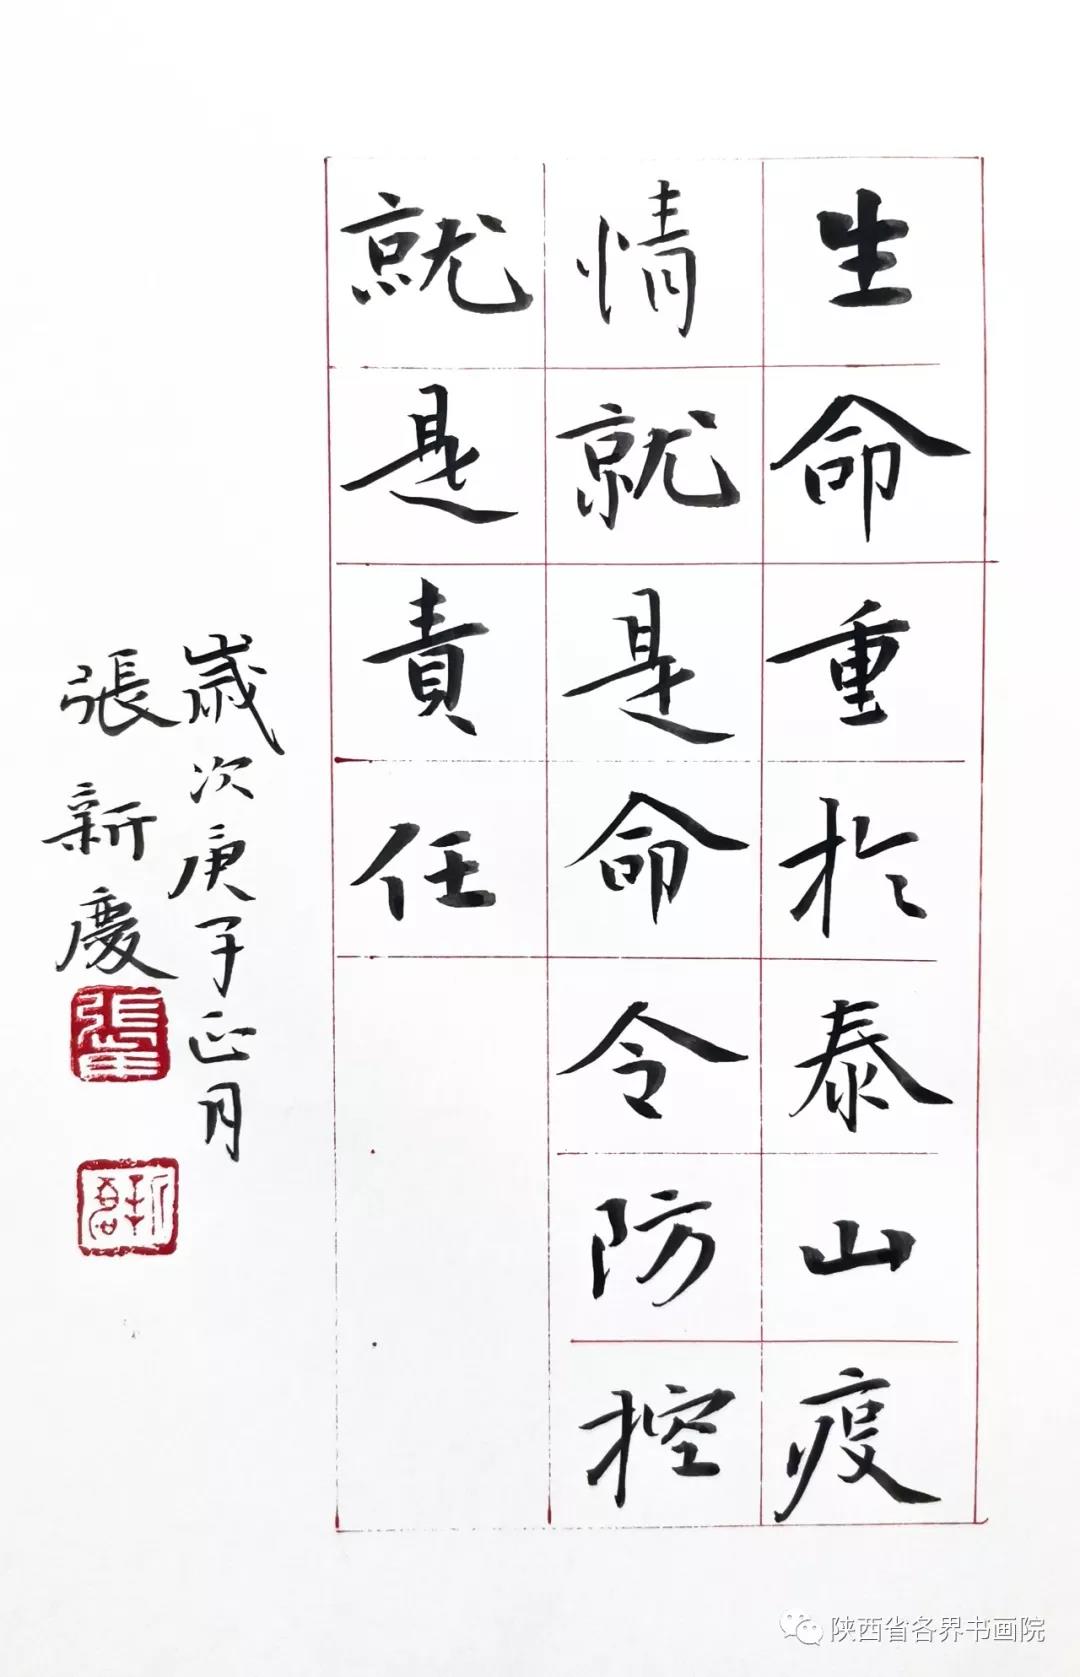 生命重於泰山疫
情就是命令防控
就是責任
歲次庚子正月
張新慶
陕西省各界书画院